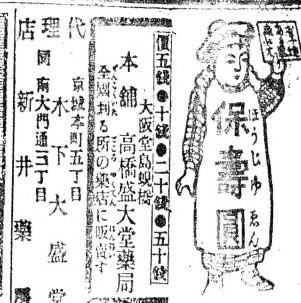 保壽圓
ほうじゆゑん
價五錢●十錢●二十錢●五十錢
大阪堂島蜆橋
本舗 高橋盛大堂藥局
全國到る所の藥店に販賣す
代理店
京城本町五丁目
木下大盛堂
同南大門通三丁目
新井藥